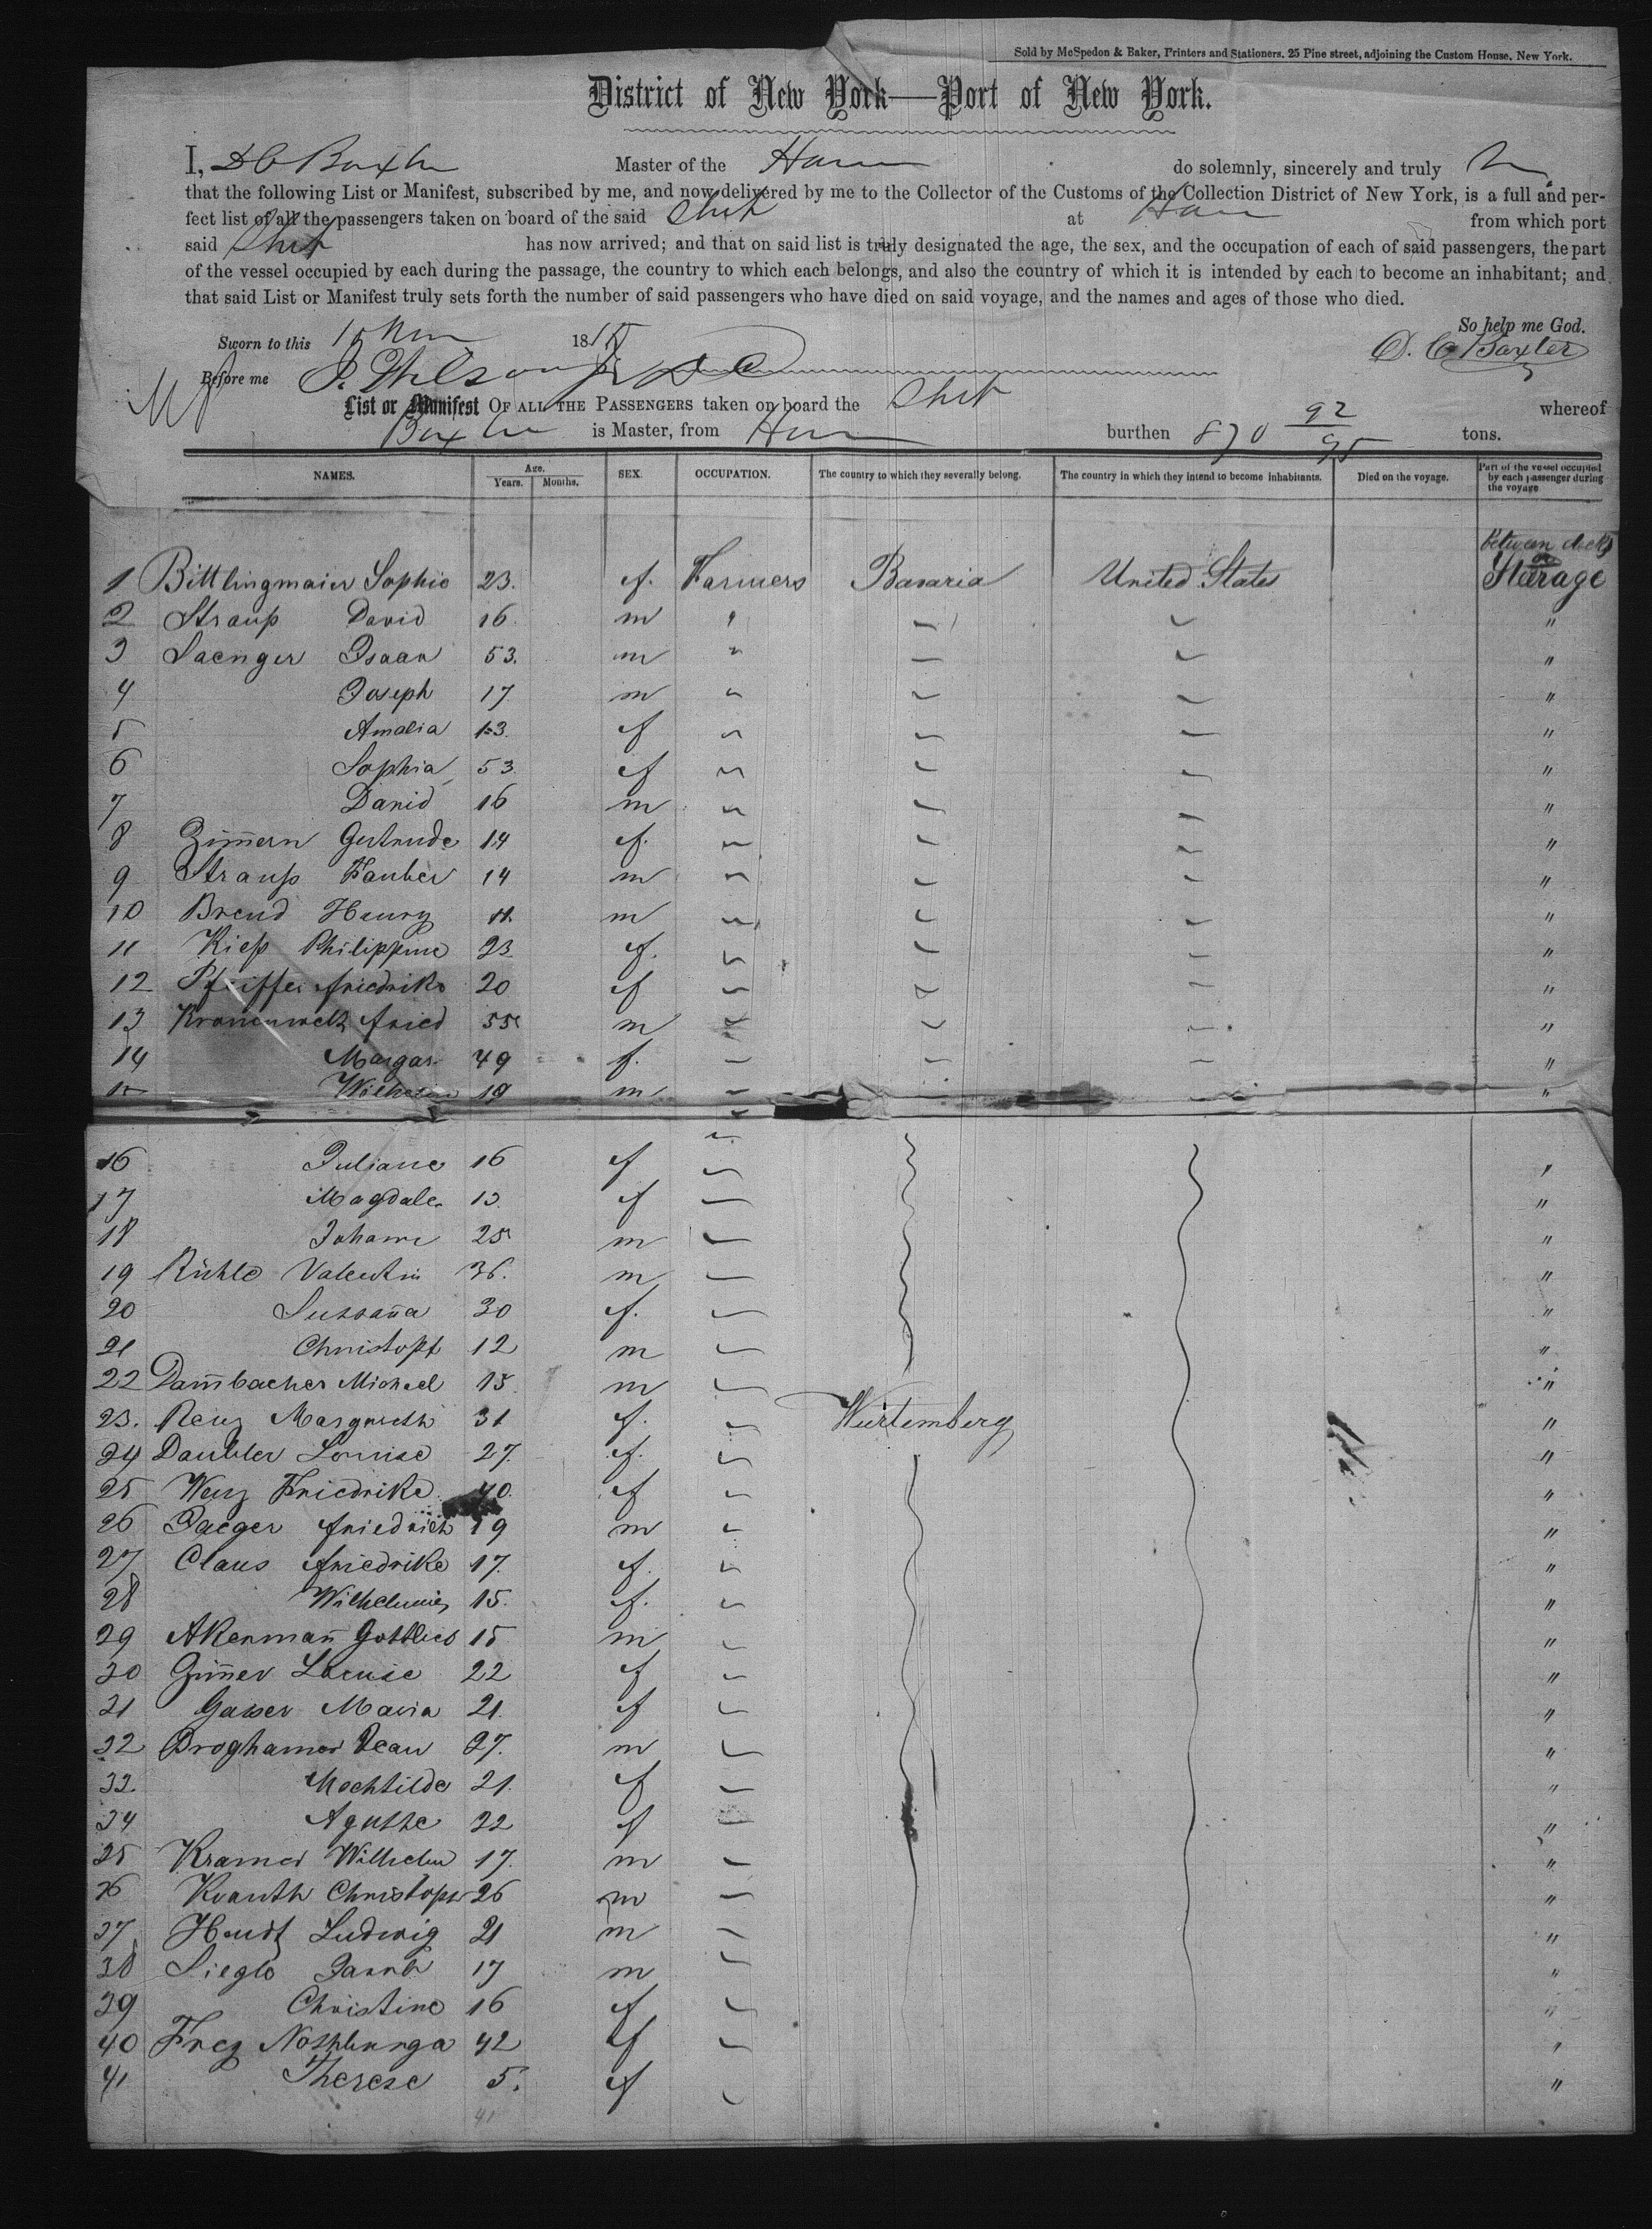 Sold by McSpedon & Baker, Printers and Stationers, 25 Pine street, adjoining the Custom House, New York.
District of New York—Port of New York.
I, D C Baxter Master of the do solemnly, sincerely and truly
that the following List or Manifest, subscribed by me, and now delivered by me to the Collector of the Customs of the Collection District of New York, is a full and per-
fect list of all the passengers taken on board of the said Ship at from which port
said Ship has now arrived; and that on said list is truly designated the age, the sex, and the occupation of each of said passengers, the part
of the vessel occupied by each during the passage, the country to which each belongs, and also the country of which it is intended by each to become an inhabitant; and
that said List or Manifest truly sets forth the number of said passengers who have died on said voyage, and the names and ages of those who died.
So help me God.
Sworn to this 18 D. C. Baxter
Before me
List or Manifest OF ALL THE PASSENGERS taken on board the Ship whereof
Baxter is Master, from burthen 870 92/95 tons.
NAMES. Age. Years. Months. SEX. OCCUPATION. The country to which they severally belong. The country in which they intend to become inhabitants. Died on the voyage. Part of the vessel occupied by each passenger during the voyage
between decks
1 Bittlingmaier Sophie 23. f. Farmers Bavaria United States Sterage
2 Strauß David 16. m " "
3 Saenger Isaac 53. m " "
4 Joseph 17 m "
5 Amalia 13. f "
6 Sophia 53 f "
7 David 16 m "
8 Zim̄ern Gertrude 14 f. "
9 Strauß 14 m "
10 Henry 11. m "
11 Kieß Philippine 23 f. "
12 Pfeiffer friedrike 20 f "
13 fried 55 m "
14 Margar 49 f. "
15 Wilhelm 19 m "
16 Juliane 16 f "
17 Magdale 13. f "
18 Johann 25 m "
19 Rühle Valentin 36. m "
20 Sussan̄a 30 f. "
21 Christoph 12 m "
22 Dam̄bacher Michael 15. m "
23. Renz Margareth 31 f. Wurtemberg "
24 Daubler Louise 27. f. "
25 Wenz Friedrike 40. f "
26 Jaeger friedrich 19 m "
27 Claus friedrike 17. f. "
28 Wilhelmine 15. f. "
29 Akerman̄ Gottlieb 15 m "
30 Gim̄er Louise 22 f "
31 Maria 21. f "
32 Broghamer Jean 27. m "
33. Mechtilde 21. f "
34 Agathe 22 f "
35 Kramer Wilhelm 17. m "
36 Christoph 26 m "
37 Ludwig 21 m "
38 Siegle Jacob 17 m "
39 Christine 16 f "
40 Frey Nothburga 42 f "
41 Therese 5. f "
41